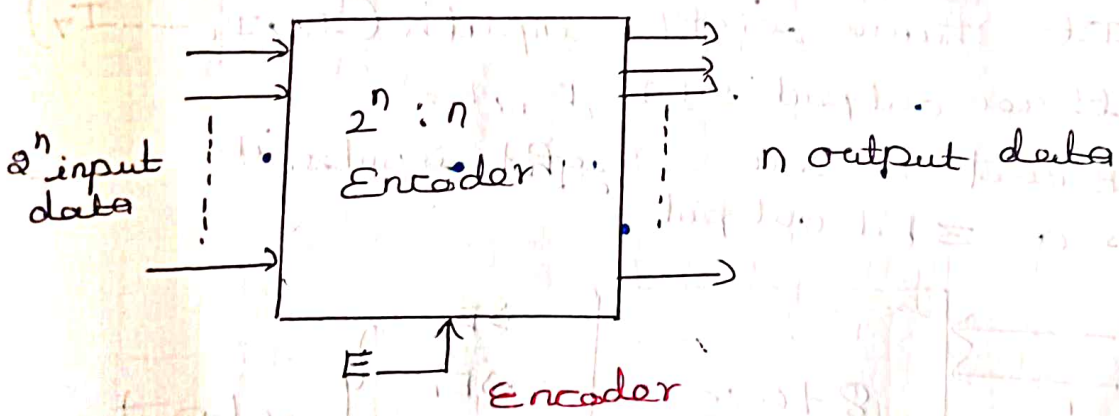 2ⁿ input
data
2ⁿ : n
Encoder
n output data
E
Encoder